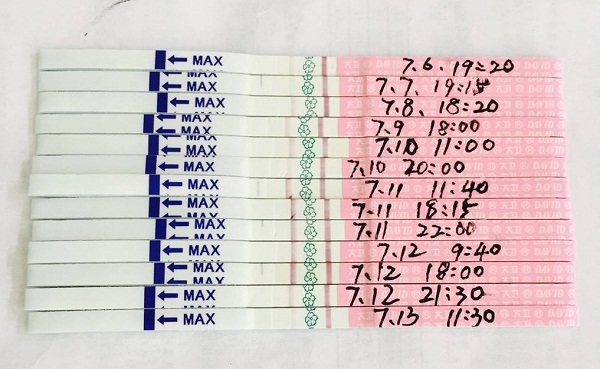 ← MAX 7.6. 19:20
← MAX 7.7. 19:15
← MAX 7.8. 18:20
← MAX 7.9 18:00
← MAX 7.10 11:00
← MAX 7.10 20:00
← MAX 7.11 11:40
← MAX 7.11 18:15
← MAX 7.11 22:00
← MAX 7.12 9:40
← MAX 7.12 18:00
← MAX 7.12 21:30
← MAX 7.13 11:30